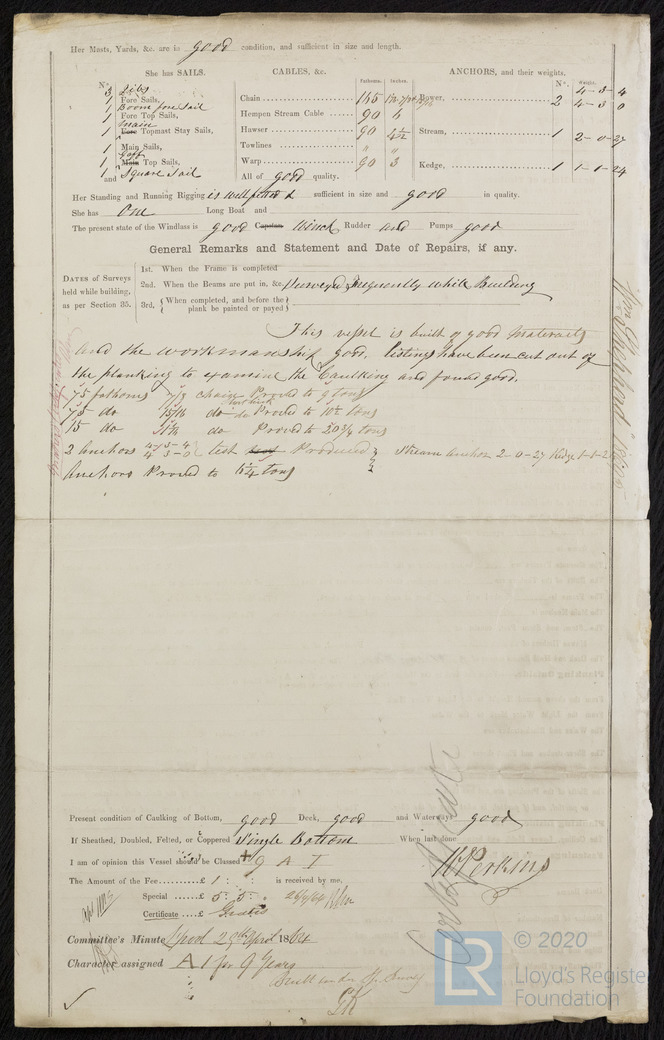 Her Masts, Yards, &c. are in good condition, and sufficient in size and length.
She has SAILS.
CABLES, &c.
ANCHORS, and their weights.
No.
Fathoms. Inches.
No. Weight.
3 Jibs
1 Fore Sails,
1 Boom fore Sail
1 Fore Top Sails,
1 main Fore Topmast Stay Sails,
1 Main Sails,
1 Gaff Main Top Sails,
1 and Square Sail
Chain 165
Hempen Stream Cable 90 6
Hawser 90 4 1/2
Towlines " "
Warp 90 3
All of good quality.
Bower, 2 4-3-4
4-3-0
Stream, 1 2-0-27
Kedge, 1 1-1-24
Her Standing and Running Rigging is well fitted sufficient in size and good in quality.
She has One Long Boat and
The present state of the Windlass is good Capstan Winch Rudder and Pumps good
General Remarks and Statement and Date of Repairs, if any.
DATES of Surveys held while building, as per Section 35.
1st. When the Frame is completed
2nd. When the Beams are put in, &c. Surveyed frequently while Building
3rd, { When completed, and before the plank be painted or payed }
This vessel is built of good materials
and the workmanship good. listings have been cut out of
the planking to examine the Caulking and found good.
75 fathoms 7/8 chain Proved to 9 tons
75 do 15/16 do Proved to 10 1/2 tons
15 do do Proved to 20 3/4 tons
2 Anchors 4-3-4 4-3-0 } test Produced Stream Anchor 2-0-27 Kedge
Anchors Proved to 6 1/4 tons
Present condition of Caulking of Bottom, good Deck, good and Waterways good
If Sheathed, Doubled, Felted, or Coppered Single Bottom When last done
I am of opinion this Vessel should be Classed + 9 A 1
The Amount of the Fee £ 1 : : is received by me,
Special £ 5 : 5 :
Certificate £ Gratis
Perkins
Certificate
Committee's Minute Lpool 29th April 1864
Character assigned A 1 for 9 Years
Built under Sp. Survey
LR
© 2020
Lloyd's Register
Foundation